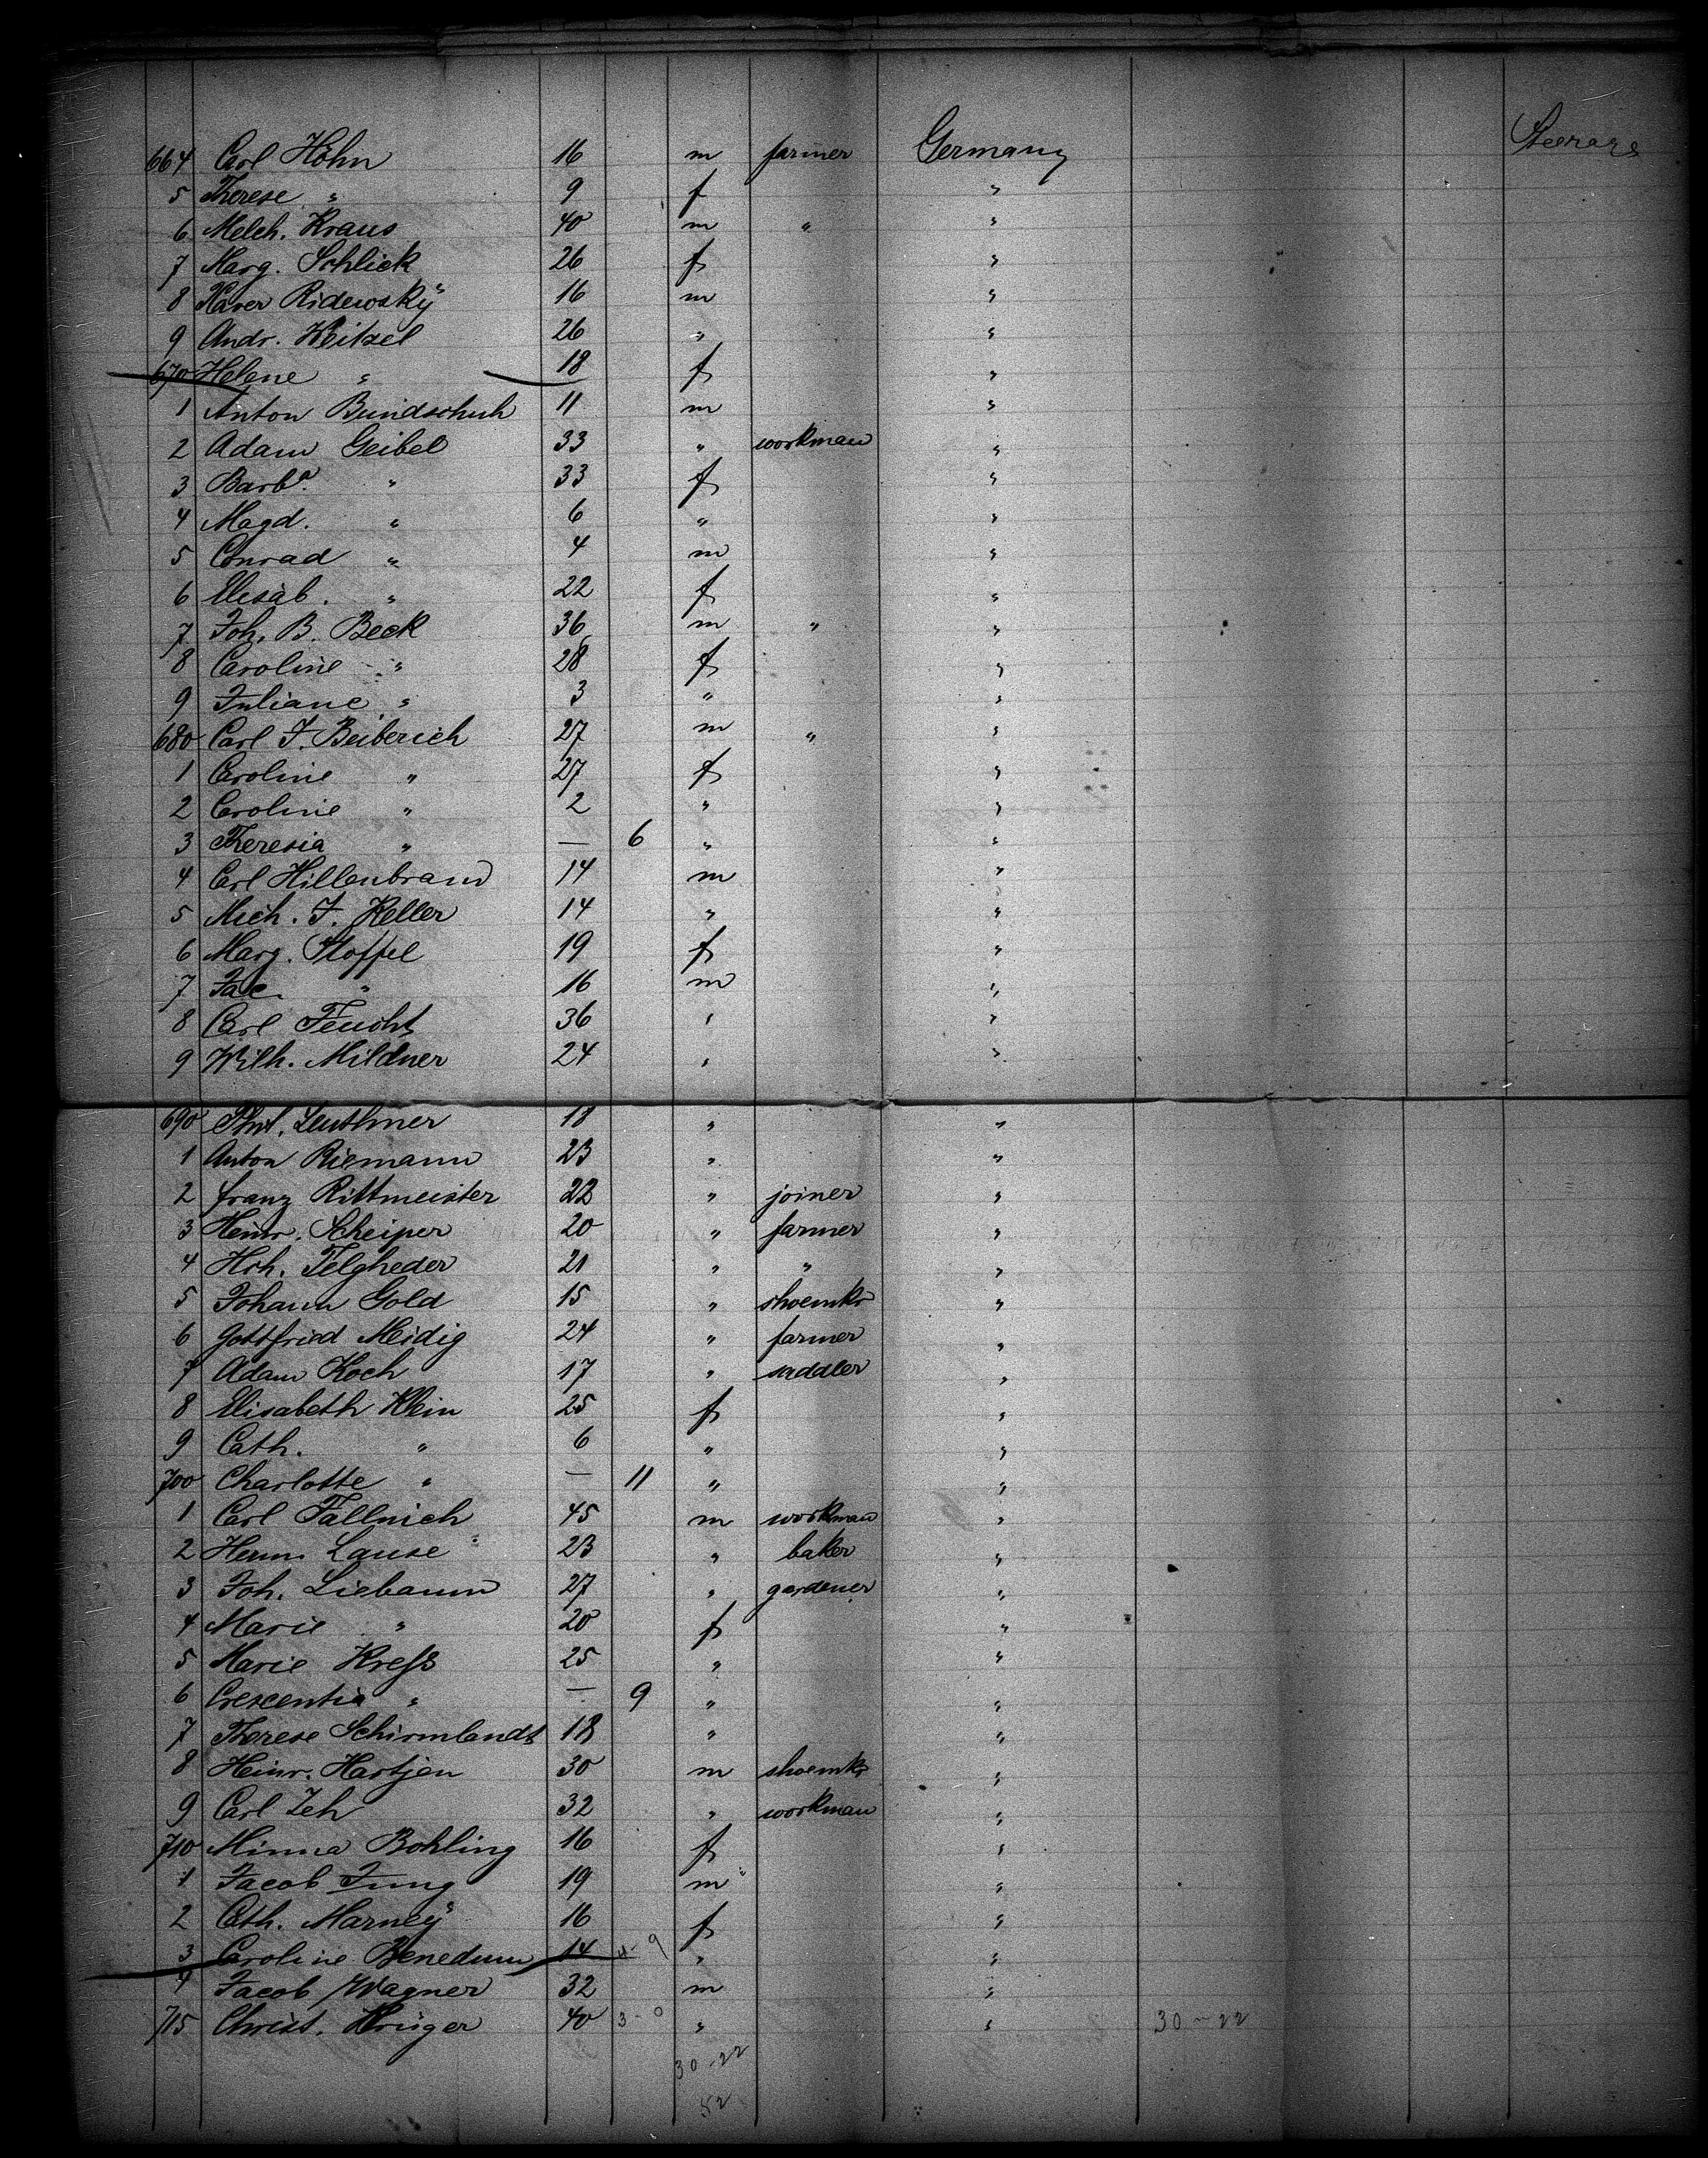 664 Carl Höhn 16 m farmer Germany Steerage
5 Therese " 9 f "
6 Melch. Kraus 40 m " "
7 Marg. Schlick 26 f "
8 Xaver Ridewsky 16 m "
9 Andr. Weitzel 26 " "
670 Helene " 18 f "
1 Anton Bundschuh 11 m "
2 Adam Geibel 33 " workman "
3 Barba. " 33 f "
4 Magd. " 6 " "
5 Conrad " 4 m "
6 Elisab. " 22 f "
7 Joh. B. Beck 36 m " "
8 Caroline " 28 f "
9 Juliane " 3 " "
680 Carl J. Beiberich 27 m " "
1 Caroline " 27 f "
2 Caroline " 2 " "
3 Theresia " — 6 " "
4 Carl Hillenbrand 14 m "
5 Mich. J. Keller 14 " "
6 Marg. Stoffel 19 f "
7 Jac. " 16 m "
8 Carl Feucht 36 " "
9 Wilh. Mildner 24 " "
690 Leuthner 18 " "
1 Anton Riemann 23 " "
2 Franz Rittmeister 22 " joiner "
3 Heinr. Scheiper 20 " farmer "
4 Hch. Telgheder 21 " " "
5 Johann Gold 15 " shoemkr "
6 Gottfried Meidig 24 " farmer "
7 Adam Koch 17 " saddler "
8 Elisabeth Klein 25 f "
9 Cath. " 6 " "
700 Charlotte " — 11 " "
1 Carl Fallnich 45 m workman "
2 Herm. Lause 23 " baker "
3 Joh. Liebaum 27 " gardener "
4 Marie " 20 f "
5 Marie Kreß 25 " "
6 Crescentia " — 9 " "
7 Therese Schirmlandt 18 " "
8 Heinr. Hartjen 30 m shoemkr "
9 Carl Zeh 32 " workman "
710 Minna Bohling 16 f "
1 Jacob Jung 19 m "
2 Cath. Marney 16 f "
3 Caroline Benedum 14 4-9 " "
4 Jacob Wagner 32 m "
715 Christ. Krüger 40 3-0 " " 30-22
30-22
52